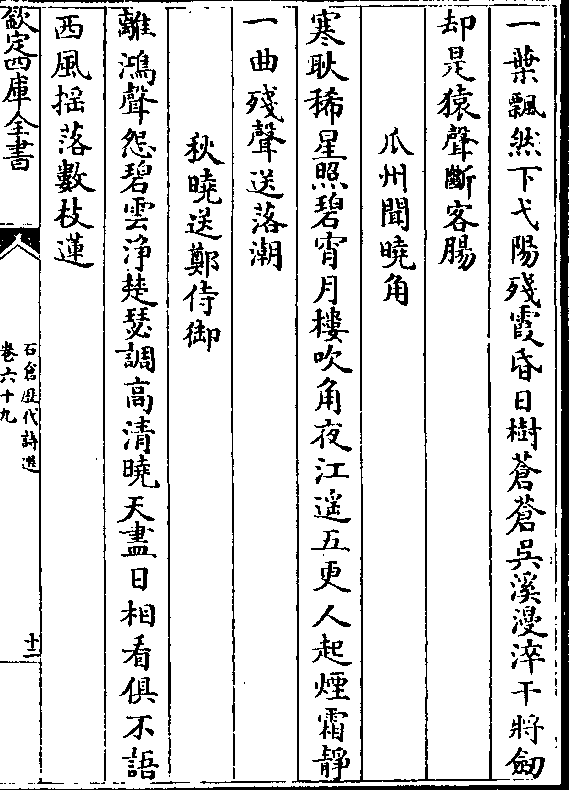 一葉飄然下弋陽殘霞昏日樹蒼蒼吳溪漫淬干將劒
却是猿聲斷客腸
瓜州聞曉角
寒耿稀星照碧宵月樓吹角夜江遥五更人起煙霜靜
一曲殘聲送落潮
秋曉送鄭侍御
離鴻聲怨碧雲浄楚瑟調高清曉天盡日相看俱不語
西風揺落數枝蓮
欽定四庫全書
石倉歷代詩選
卷六十九
十二